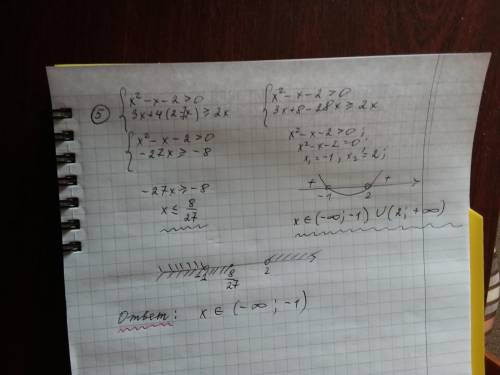 ⑤ { x² - x - 2 > 0
3x + 4(2-7x) ≥ 2x
{ x² - x - 2 > 0
3x + 8 - 28x ≥ 2x
{ x² - x - 2 > 0
-27x ≥ -8
x² - x - 2 > 0;
x² - x - 2 = 0;
x₁ = -1, x₂ = 2;
+ - +
-1 2
-27x ≥ -8
x ≤ 8/27
x ∈ (-∞; -1) ∪ (2; +∞)
-1 8/27 2
Ответ: x ∈ (-∞; -1)